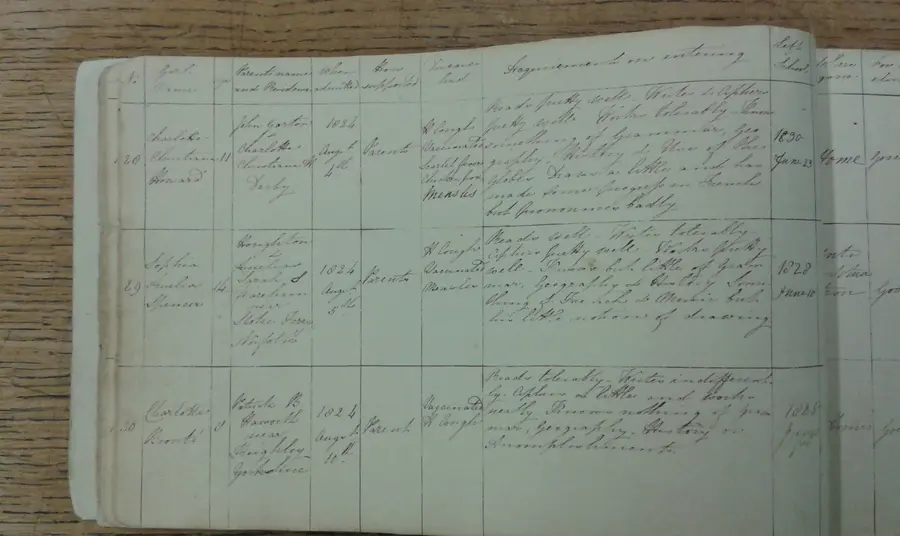 No.
Girl's
Name
Parents name
and Residence
When
admitted
How
supported
Diseases
had
Acquirements on entering
Left
School
28
Charlotte
Christiana
Howard
11
John Gorton
&
Charlotte
Christiana H
Derby
1824
Augst
4th
Parents
H Cough
Vaccinated
Scarlet fever
Chicken pox
Measles
Reads pretty well. Writes &
pretty well. Works tolerably. Knows
something of Grammar, Geo
graphy, History & Use of the
Globes. Draws a little and has
made some progress in French
but pronounces badly
1830
June 23
Home
29
Sophia
Amelia
Spencer
14
Houghton
&
Sarah S
near
Stoke Ferry
Norfolk
1824
Augst
5th
Parents
H Cough
Vaccinated
Measles
Reads well. Writes tolerably.
Ciphers pretty well. Works pretty
well. Knows but little of Gram
mar, Geography & History. Some
thing of French & Music but
has little notions of drawing
1828
June
30
Charlotte
Brontë
8
Patrick B
Haworth
near
Keighley
Yorkshire
1824
Augst
10th
Parent
Vaccinated
H Cough
Reads tolerably. Writes indifferent
ly. Ciphers a little and works
neatly. Knows nothing of Gram
mar, Geography, History or
Accomplishments.
1825
June
Home